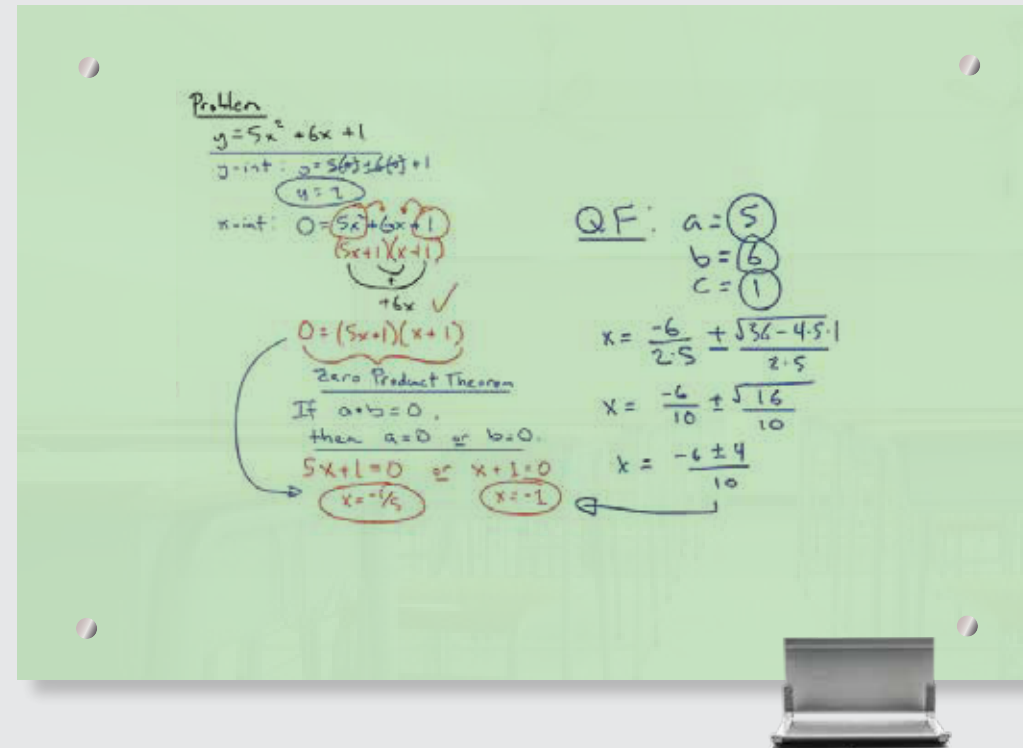 Problem
y=5x² +6x +1
y-int: y=5(0)²+6(0)+1
y=1
x-int: 0=5x²+6x+1
(5x+1)(x+1)
+
+6x ✓
0=(5x+1)(x+1)
Zero Product Theorem
If a•b=0,
then a=0 or b=0.
5x+1=0 or x+1=0
x=-1/5 x=-1
QF: a=5
b=6
c=1
x= -6/2·5 ± √36-4·5·1/2·5
x= -6/10 ± √16/10
x= -6±4/10